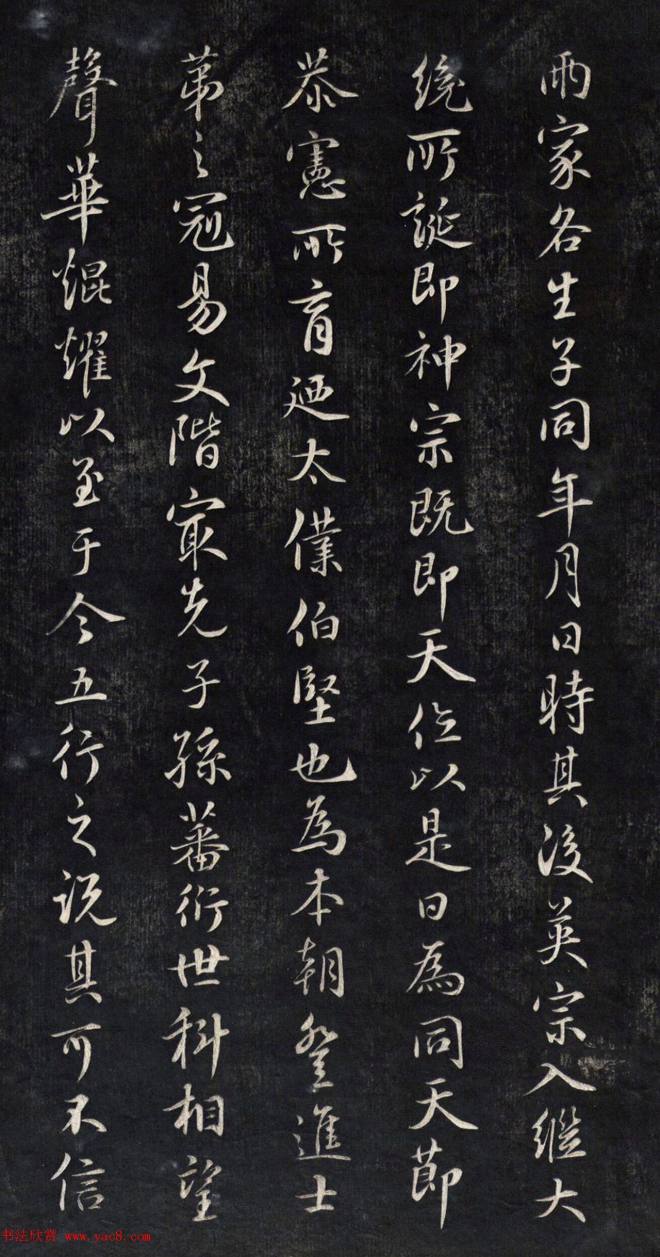 兩家各生子同年月日時其後英宗入繼大
統所誕即神宗既即天位以是日為同天節
恭憲所育迺太僕伯堅也為本朝登進士
第之冠易文階寔先子孫蕃衍世科相望
聲華焜耀以至于今五行之説其可不信
书法欣赏 www.yac8.com